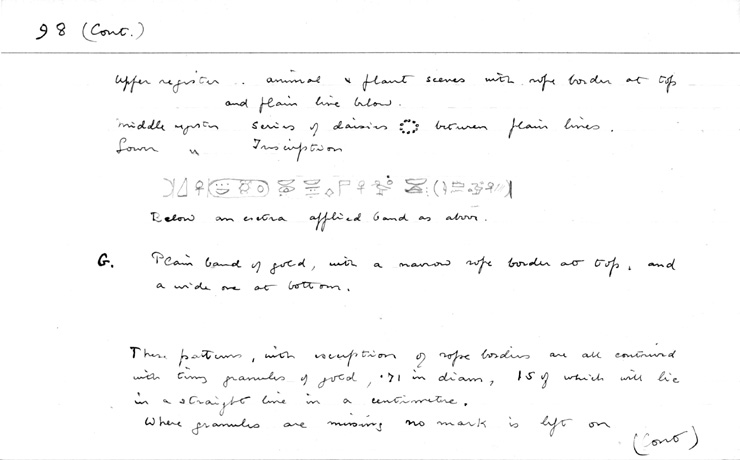 98 (Cont.)
Upper register .. animal & plant scenes with rope border at top
and plain line below.
Middle register series of daisies between plain lines.
Lower " Inscription
Below an extra applied band as above.
G. Plain band of gold, with a narrow rope border at top, and
a wide one at bottom.
These patterns, with exception of rope borders are all contrived
with tiny granules of gold, .71 in diam, 15 of which will lie
in a straight line in a centimetre.
Where granules are missing no mark is left on
(Cont)